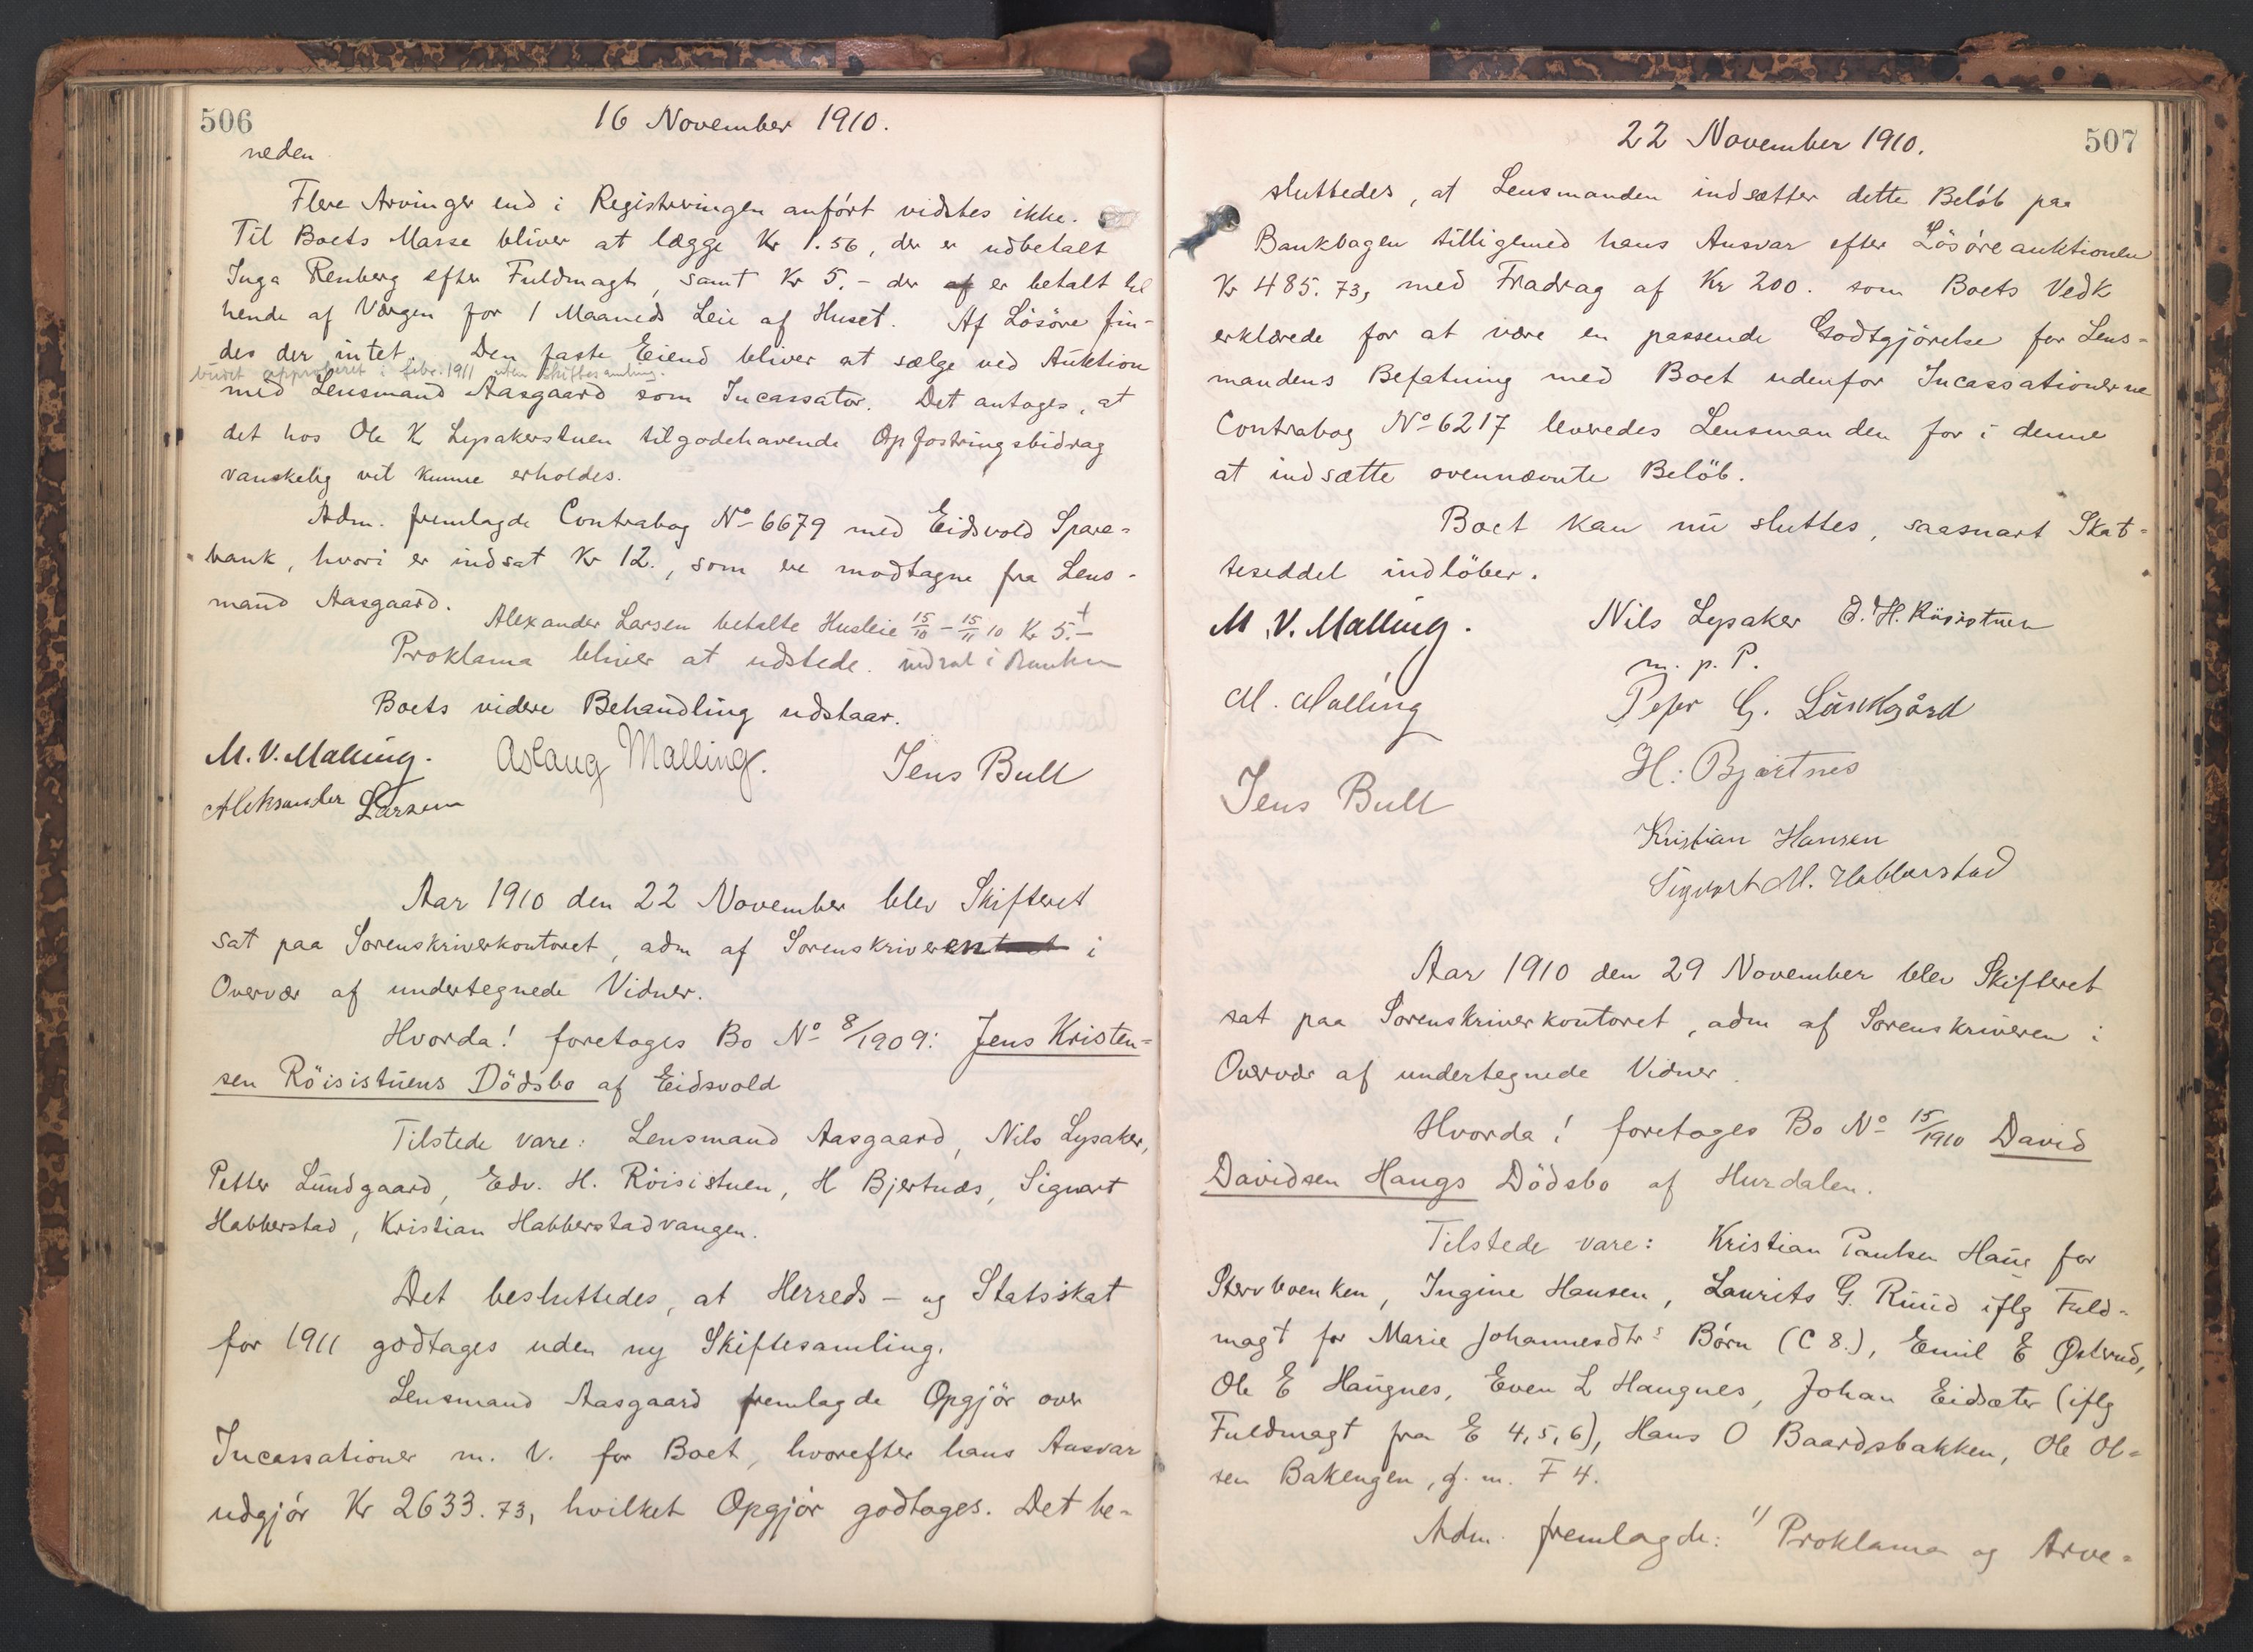 506
16 November 1910.
neden
Flere Arvinger end i Registreringen anført vidstes ikke.
Til Boets Masse bliver at lægge Kr 1.56, der er udbetalt
Inga Renberg efter Fuldmagt, samt Kr 5.- der af er betalt til
hende af Værgen for 1 Maaneds Leie af Huset. Af Løsøre fin-
des der intet. Den faste Eiend bliver at sælge ved Auktion
approberet i febr. 1911 uten Skiftesamling.
med Lensmand Aasgaard som Incassator. Det antoges, at
det hos Ole K Lysakerstuen tilgodehavende Opfostringsbidrag
vanskelig vil kunne erholdes.
Adm. fremlagde Contrabog No 6679 med Eidsvold Spare-
bank, hvori er indsat Kr 12., som er modtagne fra Lens-
mand Aasgaard.
Alexander Larsen betalte Husleie 15/10 - 15/11 10 Kr 5.-
Proklama bliver at udstede. indsat i Banken
Boets videre Behandling udstaar.
M. V. Malling. Aslaug Malling. Jens Bull
Aleksander Larsen
Aar 1910 den 22 November blev Skifteret
sat paa Sorenskriverkontoret, adm af Sorenskriveren i
Overvær af undertegnede Vidner.
Hvorda! foretoges Bo No 8/1909: Jens Kristen-
sen Röisistuens Dödsbo af Eidsvold
Tilstede vare: Lensmand Aasgaard, Nils Lysaker,
Petter Lundgaard, Edv. H. Röisistuen, H Bjertnæs, Sigvart
Habberstad, Kristian Habberstadvangen.
Det besluttedes, at Herreds- og Statsskat
for 1911 godtages uden ny Skiftesamling.
Lensmand Aasgaard fremlagde Opgjör over
Incassationer m. V. for Boet, hvorefter hans Ansvar
udgjör Kr 2633.73, hvilket Opgjör godtoges. Det be-
22 November 1910.
507
sluttedes, at Lensmanden indsætter dette Beløb paa
Bankbogen tilligemed hans Ansvar efter Løsøreauktionen
Kr 485.73, med Fradrag af Kr 200. som Boets Vedk
erklærede for at være en passende Godtgjörelse for Lens-
mandens Befatning med Boet udenfor Incassationerne
Contrabog No 6217 leveredes Lensmanden for i denne
at indsætte ovennævnte Belöb.
Boet kan nu sluttes, saasnart Skat-
teseddel indlöber.
M. V. Malling. Nils Lysaker E. H. Röisistuen
m. p. P.
M. Malling Peter G. Lundgård
H: Bjærtnes
Jens Bull
Kristian Hansen
Sigvart M. Habberstad
Aar 1910 den 29 November blev Skifteret
sat paa Sorenskriverkontoret, adm af Sorenskriveren i
Overvær af undertegnede Vidner.
Hvorda! foretoges Bo No 15/1910 David
Davidsen Haugs Dödsbo af Hurdalen.
Tilstede vare: Kristian Paulsen Haug for
Stervboenken, Ingine Hansen, Laurits G. Ruud iflg Fuld-
magt for Marie Johannesdtrs Børn (C 8.), Emil E Østerud,
Ole E Haugnes, Even L Haugnes, Johan Eidsæter (iflg
Fuldmagt fra E 4, 5, 6), Hans O Baardsbakken, Ole Ol-
sen Bakengen, g. m. F 4.
Adm. fremlagde: 1) Proklama og Arve-